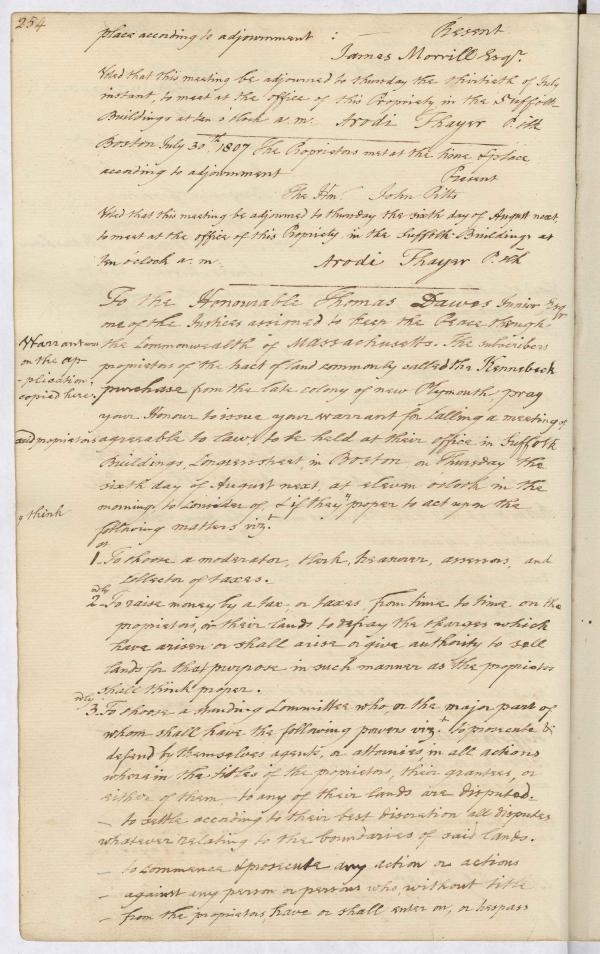 254
place according to adjournment : — Present
James Morrill Esqr.
Voted that this meeting be adjourned to thursday the thirtieth of July
instant, to meet at the office of this Propriety in the Suffolk
Buildings at ten o'clock a.m. Arodi Thayer P. Clk
Boston July 30.th 1807 The Proprietors met at the time & place
according to adjournment Present
The Hon. John Pitts
Voted that this meeting be adjourned to thursday the sixth day of August next,
to meet at the office of this Propriety in the Suffolk-Buildings at
ten o'clock a.m. Arodi Thayer P. Clk
To the Honourable Thomas Dawes Junior Esqr
one of the Justices assigned to keep the Peace through
Warrant on the ap-plication copied here.
the Commonwealth of Massachusetts. The subscribers
proprietors of the tract of land commonly called the Kennebeck
purchase from the late colony of new Plymouth, pray
your Honour to issue your warrant for calling a meeting of
said propietors
agreeable to law, to be held at their office in Suffolk
Buildings, Congress street, in Boston on Thursday the
sixth day of August next, at eleven o'clock in the
morning, to consider of, & if they " proper to act upon the
" think
following matters viz.t
1.st To choose a moderator, Clerk, treasurer, assessors, and
collector of taxes.
2.dly To raise money by a tax, or taxes from time to time on the
proprietors, or their lands to defray the charges which
have arisen or shall arise or give authority to sell
lands for that purpose in such manner as the proprietors
shall think proper.
3.dly To choose a standing Committee who, or the major part of
whom shall have the following powers viz.t to prosecute &
defend by themselves agents, or attornies in all actions
wherein the titles of the proprietors, their grantees, or
either of them — to any of their lands are disputed.
— to settle according to their best discretion all disputes
whatever relating to the boundaries of said lands.
— to commence & prosecute any action or actions
— against any person or persons who, without title
— from the proprietors, have or shall enter on, or trespass